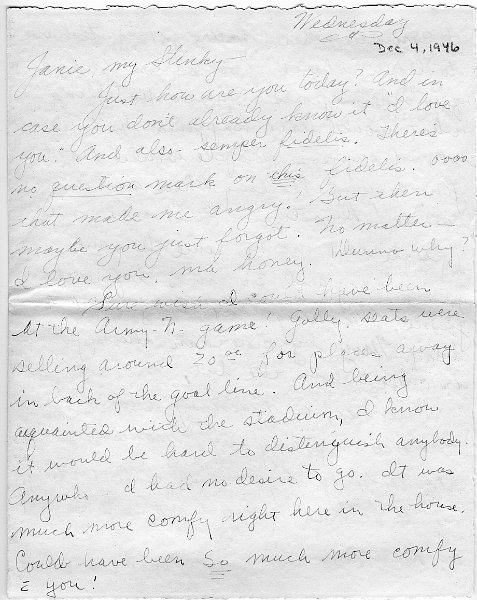 Wednesday
Dec 4, 1946
Janie, my Stinky
Just how are you today? And in
case you don't already know it I love
you." And also - semper fidelis. There's
no question mark on this fidelis. oooo
that made me angry! But then
maybe you just forgot. No matter -
I love you, ma honey. Wanna why?
Sure wish I could have been
at the Army-N. game! Golly, seats were
selling around 20 00 for places away
in back of the goal line. And being
acquainted with the stadium, I know
it would be hard to distinguish anybody.
Anywho I had no desire to go. It was
much more comfy right here in the house.
Could have been So much more comfy
c̄ you!